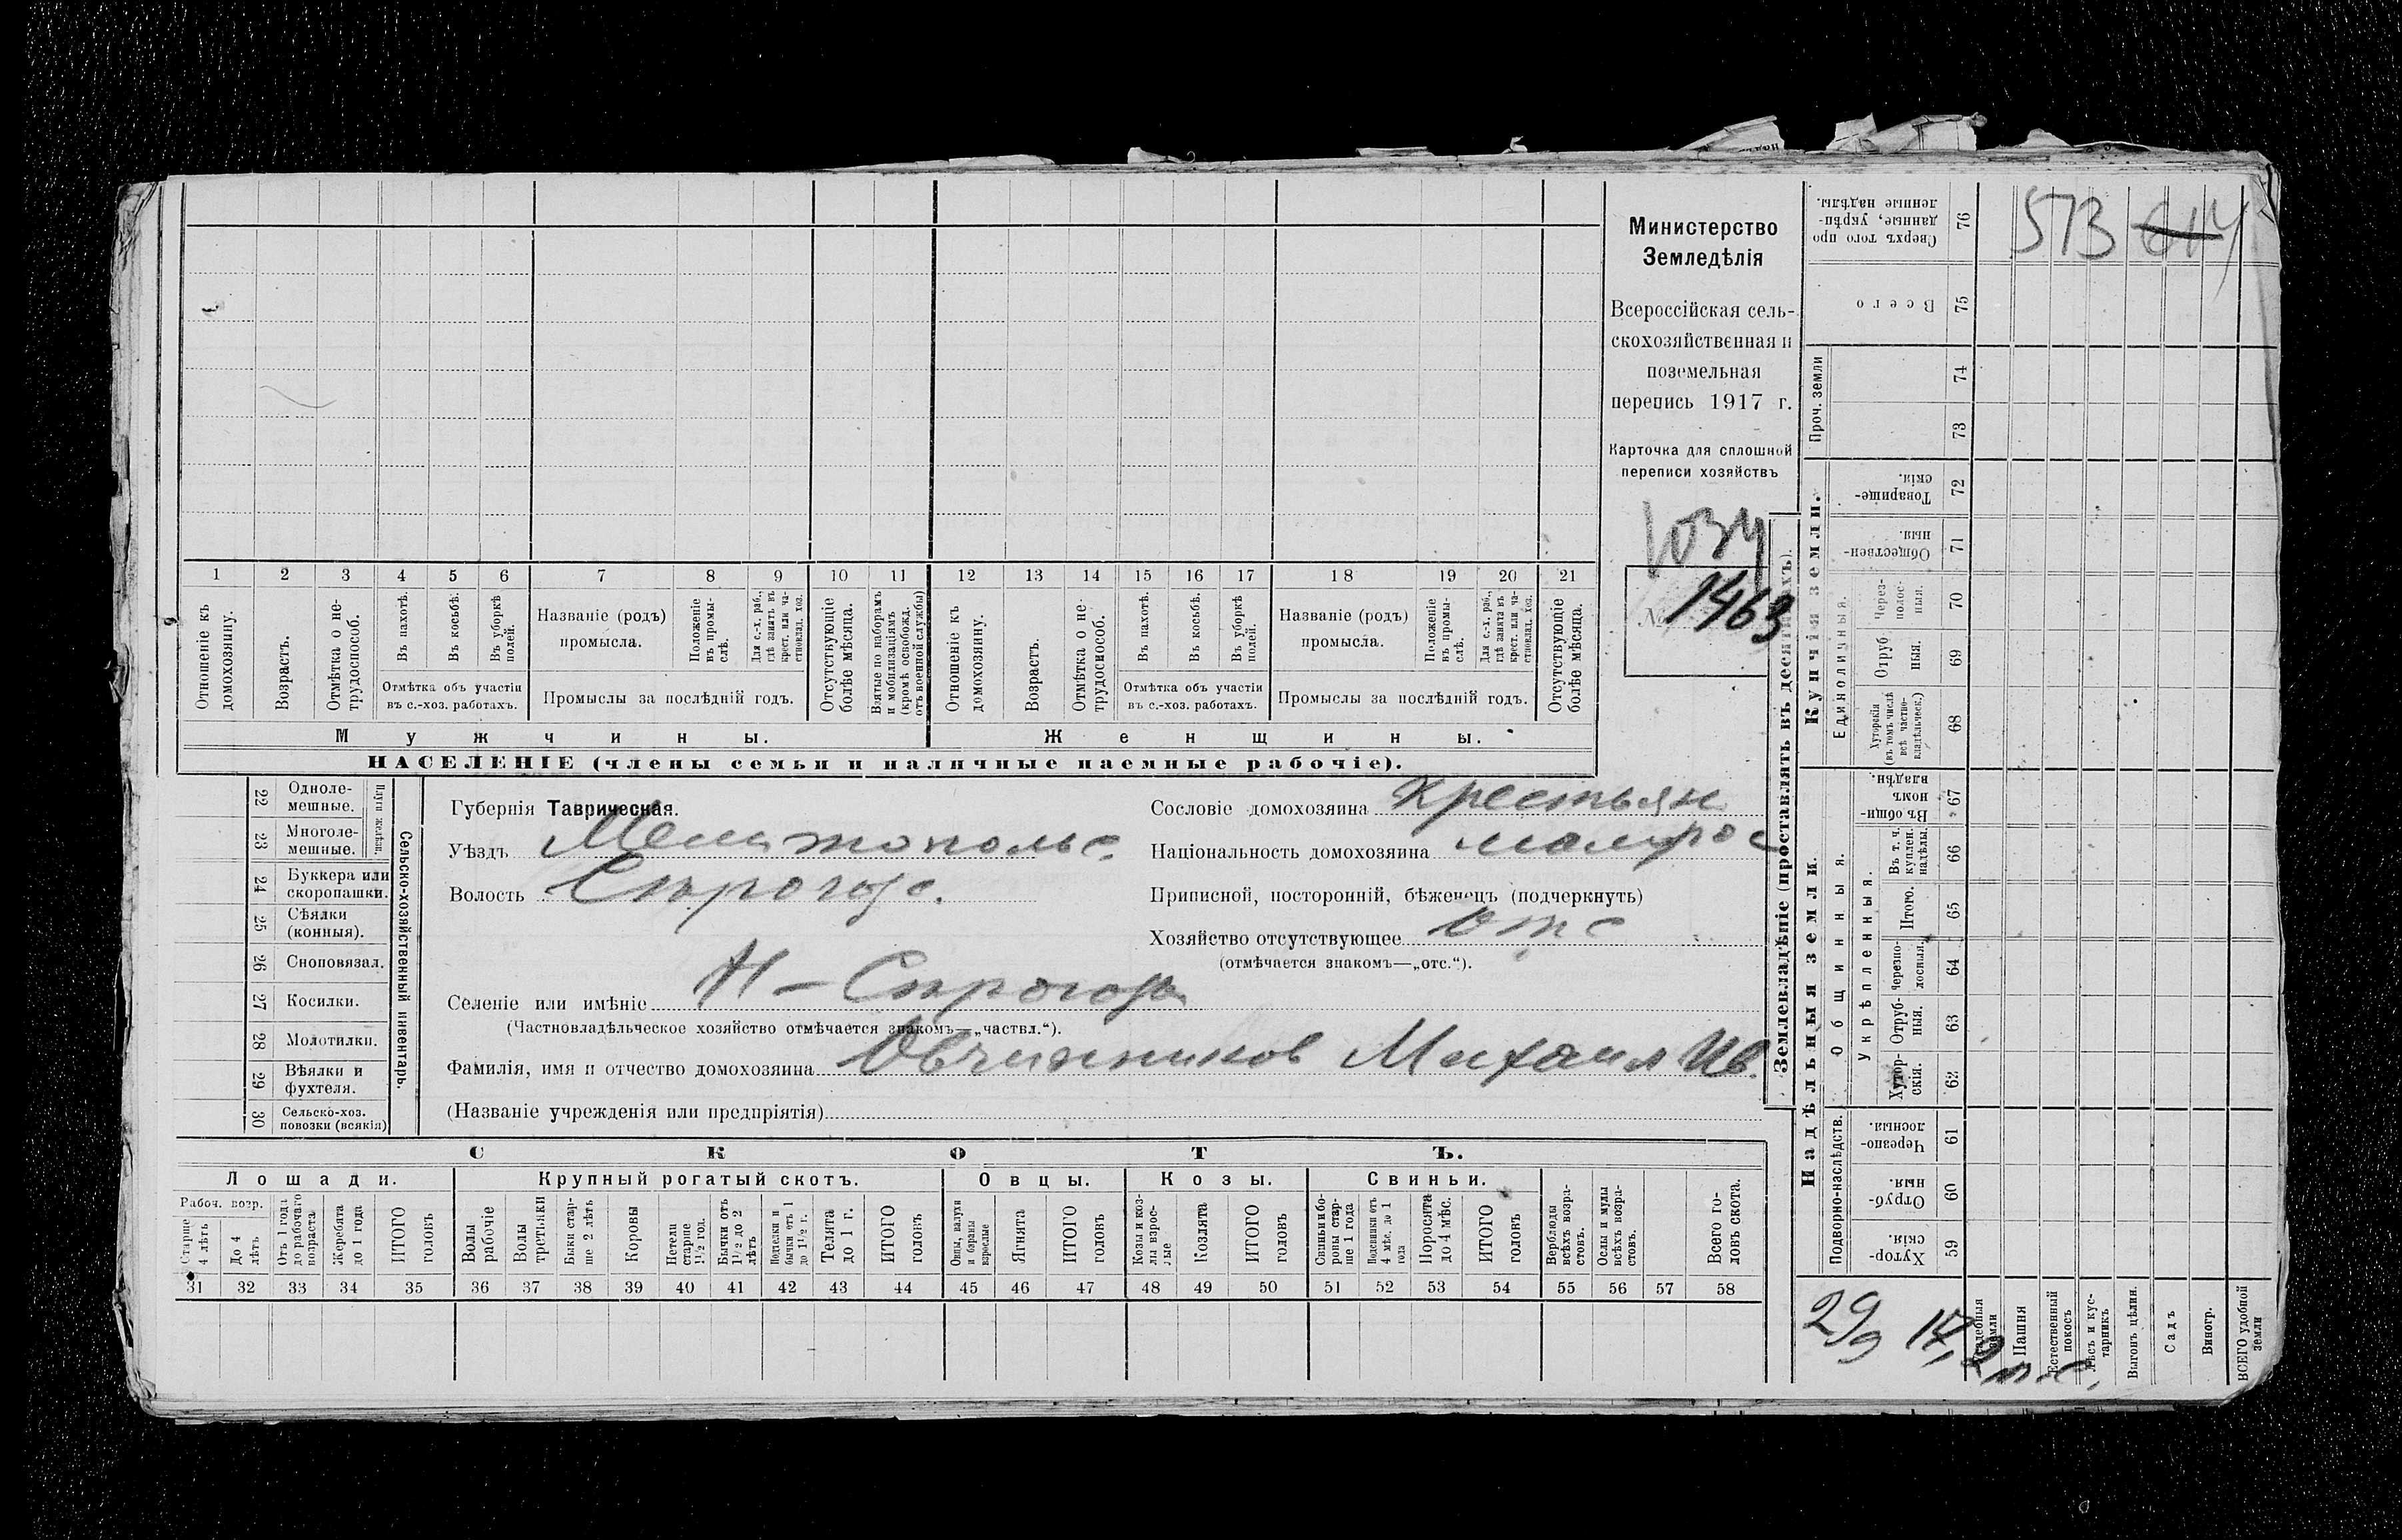 Министерство
Земледѣлія
Всероссійская сель-
скохозяйственная и
поземельная
перепись 1917 г.
Карточка для сплошной
переписи хозяйствъ
1034
№ 1463
573 614
1 2 3 4 5 6 7 8 9 10 11 12 13 14 15 16 17 18 19 20 21
Отношеніе къ домохозяину.
Возрастъ.
Отмѣтка о не-трудоспособ.
Въ пахотѣ.
Въ косьбѣ.
Въ уборкѣ полей.
Отмѣтка объ участіи
въ с.-хоз. работахъ.
Названіе (родъ)
промысла.
Положеніе въ промы-слѣ.
Для с.-х. раб., гдѣ занятъ въ крест. или ча-стновлад. хоз.
Промыслы за послѣдній годъ.
Отсутствующіе болѣе мѣсяца.
Взятые по наборамъ и мобилизаціямъ (кромѣ освобожд. отъ военной службы)
Отношеніе къ домохозяину.
Возрастъ.
Отмѣтка о не-трудоспособ.
Въ пахотѣ.
Въ косьбѣ.
Въ уборкѣ полей.
Отмѣтка объ участіи
въ с.-хоз. работахъ.
Названіе (родъ)
промысла.
Положеніе въ промы-слѣ.
Для с.-х. раб., гдѣ занята въ крест. или ча-стновлад. хоз.
Промыслы за послѣдній годъ.
Отсутствующіе болѣе мѣсяца.
Мужчины. Женщины.
НАСЕЛЕНІЕ (члены семьи и наличные наемные рабочіе).
22 Однолемешные.
23 Многолемешные.
Плуги желѣзн.
24 Буккера или скоропашки.
25 Сѣялки (конныя).
26 Сноповязал.
27 Косилки.
28 Молотилки.
29 Вѣялки и фухтеля.
30 Сельско-хоз. повозки (всякія)
Сельско-хозяйственный инвентарь.
Губернія Таврическая.
Уѣздъ Мелитопольс.
Волость Сирогоз.
Сословіе домохозяина крестьян.
Національность домохозяина малорос
Приписной, посторонній, бѣженецъ (подчеркнуть)
Хозяйство отсутствующее отс
(отмѣчается знакомъ—„отс.“).
Селеніе или имѣніе Н-Сирогозы
(Частновладѣльческое хозяйство отмѣчается знакомъ—„частвл.“).
Фамилія, имя и отчество домохозяина Овчинников Михаил Ив.
(Названіе учрежденія или предпріятія)
СКОТЪ.
Лошади. Крупный рогатый скотъ. Овцы. Козы. Свиньи.
Рабоч. возр.
Старше 4 лѣтъ
До 4 лѣтъ
Отъ 1 года до рабочаго возраста
Жеребята до 1 года
ИТОГО головъ
Волы рабочіе
Волы третьяки
Быки стар-ше 2 лѣтъ
Коровы
Нетели старше 1½ год.
Бычки отъ 1½ до 2 лѣтъ
Подтелки и бычки отъ 1 до 1½ г.
Телята до 1 г.
ИТОГО головъ
Овцы, валухи и бараны взрослые
Ягнята
ИТОГО головъ
Козы и коз-лы взрос-лые
Козлята
ИТОГО головъ
Свиньи и бо-ровы стар-ше 1 года
Подсвинки отъ 4 мѣс. до 1 года
Поросята до 4 мѣс.
ИТОГО головъ
Верблюды всѣхъ возра-стовъ.
Ослы и мулы всѣхъ возра-стовъ.
Всего го-ловъ скота.
31 32 33 34 35 36 37 38 39 40 41 42 43 44 45 46 47 48 49 50 51 52 53 54 55 56 57 58
Землевладѣніе (проставлять въ десятинахъ).
Купчія земли.
Надѣльныя земли.
Проч. земли
Единоличныя.
Общинныя.
Укрѣпленныя.
Подворно-наслѣдств.
Сверхъ того про данные, укрѣп-ленные надѣлы. 76
Всего 75
74
73
Товарище-скія. 72
Обществен-ныя. 71
Через-полос-ныя. 70
Отруб ныя. 69
Хуторскія (въ томъ числѣ всѣ частно-владѣльческ.) 68
Въ общи-номъ владѣн. 67
Въ т. ч. куплен. надѣлы. 66
Итого. 65
Черезпо-лосныя. 64
Отруб-ныя. 63
Хутор-скія. 62
Черезпо-лосныя. 61
Отруб-ныя. 60
Хутор-скія. 59
Усадебныя земли
Пашня
Естественный покосъ
Лѣсъ и кус-тарникъ
Выгонъ цѣлин.
Садъ
Виногр.
ВСЕГО удобной земли
29
9